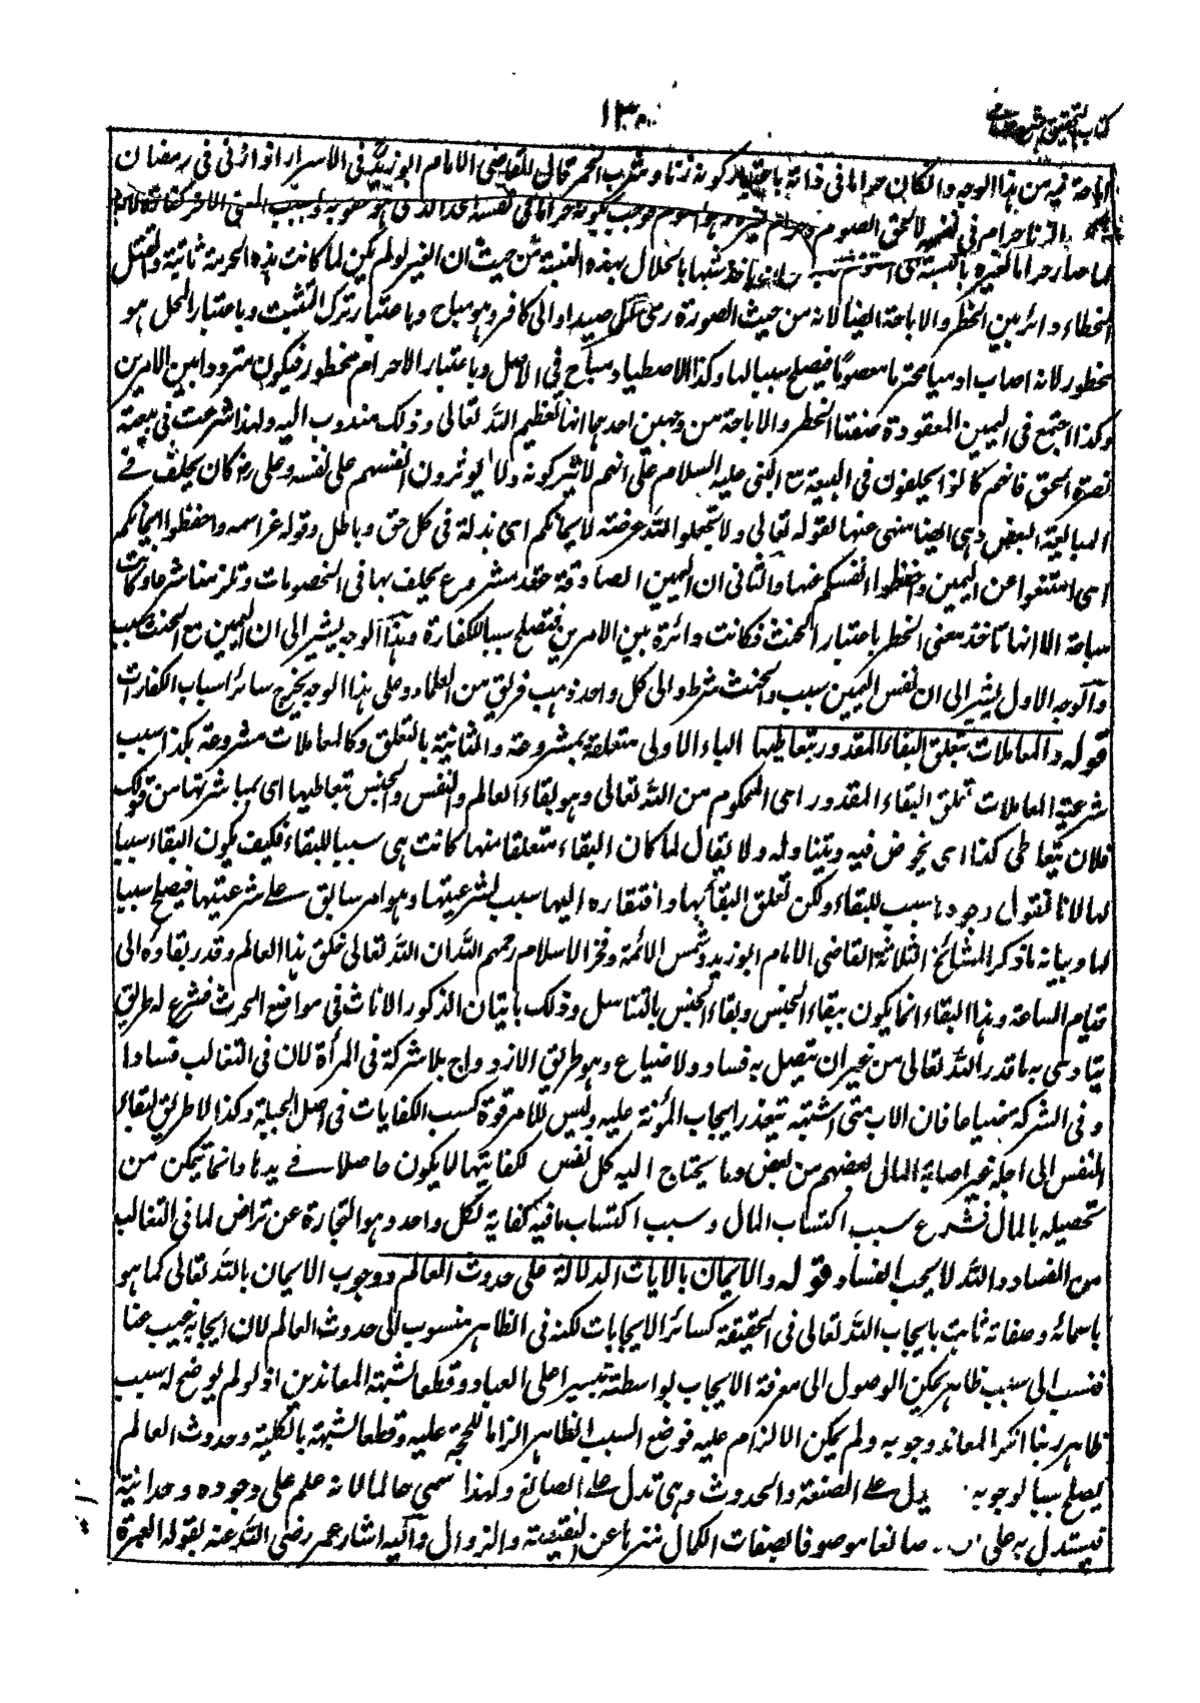 ١٣٠
كتاب التحقيق شرح حسامى
اباحة فيه من هذا الوجه وان كان حراما فى ذاته باعتبار كونه زنا وشرب الخمر قال القاضى الامام ابوزيد فى الاسرار انه اذا زنى فى رمضان
الزنا حرام فى نفسه لا لحق الصوم وحرام لغيره وهو الصوم
لما صار حراما لغيره بالنسبة الى الصوم ياخذ شبها بالحلال بهذه النسبة من حيث ان الغير لو لم يكن لما كانت هذه الحرمة ثانية والقتل
الخطاء دائر بين الحظر والاباحة ايضا لانه من حيث الصورة رمى الى صيد او الى كافر وهو مباح وباعتبار ترك التثبت وباعتبار المحل هو
محظور لانه اصاب ادميا محترما معصوما فيصلح سببا لها وكذا الاصطياد مباح فى الاصل وباعتبار الاحرام محظور فيكون مترددا بين الامرين
وكذا اجتمع فى اليمين المعقودة صفتا الحظر والاباحة من وجهين احدهما انها تعظيم الله تعالى وذلك مندوب اليه ولهذا شرعت فى بيعة
نصرة الحق فانهم كانوا يحلفون فى البيعة مع النبى عليه السلام على انهم لا يتركونه ولا يوثرون انفسهم على نفسه وعلى رض كان يحلف فى
المبالعة البعض وهى ايضا منهى عنها لقوله تعالى ولا تجعلوا الله عرضة لايمانكم اى بذلة فى كل حق وباطل وقوله عز اسمه واحفظوا ايمانكم
اى امتنعوا عن اليمين واحفظوا انفسكم عنها والثانى ان اليمين الصادقة عقد مشروع يحلف بها فى الخصومات وتلزمنا شرعا وكانت
مباحة الا انها تاخذ معنى الحظر باعتبار الحنث فكانت دائرة بين الامرين فتصلح سببا للكفارة وهذا الوجه يشير الى ان اليمين مع الحنث سبب
والوجه الاول يشير الى ان نفس اليمين سبب والحنث شرط والى كل واحد ذهب فريق من العلماء وعلى هذا الوجه يخرج سائر اسباب الكفارات
قوله والمعاملات بتعلق البقاء المقدور بتعاطيها الباء الاولى متعلقة بمشروعة والثانية بالتعلق وكالمعاملات مشروعة بكذا سبب
شرعية المعاملات تعلق البقاء المقدور اى المحكوم من الله تعالى وهو بقاء العالم والنفس والجنس بتعاطيها اى بمباشرتها من قولك
فلان يتعاطى كذا اى يخوض فيه ويتناوله ولا يقال لما كان البقاء متعلقا منها كانت هى سببا للبقاء فكيف يكون البقاء سببا
لها لانا نقول وجودها سبب للبقاء ولكن تعلق البقاء بها وافتقاره اليها سبب لشرعيتها وهو امر سابق على شرعيتها فيصلح سببا
لها وبيانه ما ذكر المشائخ الثلاثة القاضى الامام ابوزيد وشمس الائمة وفخر الاسلام رحمهم الله ان الله تعالى خلق هذا العالم وقدر بقاؤه الى
قيام الساعة وهذا البقاء انما يكون ببقاء الجنس وبقاء الجنس بالتناسل وذلك باتيان الذكور الاناث فى مواضع الحرث فشرع له طريق
يتادى به ما قدر الله تعالى من غير ان يتصل به فساد ولا ضياع وهو طريق الازدواج بلا شركة فى المرأة لان فى التغالب فسادا
وفى الشركة ضياعا فان الاب متى اشتبه يتعذر ايجاب المؤنة عليه وليس للام قوة كسب الكفايات فى اصل الجبلة وكذا لا طريق لبقاء
النفس الى اجله غير اصابة المال بعضهم من بعض وما يحتاج اليه كل نفس لكفايتها لا يكون حاصلا فى يدها وانما يتمكن من
تحصيله بالمال فشرع سبب اكتساب المال وسبب اكتساب ما فيه كفاية لكل واحد وهو التجارة عن تراض لما فى التغالب
من الفساد والله لا يحب الفساد قوله والايمان بالايات الدلالة على حدوث العالم ووجوب الايمان بالله تعالى كما هو
باسمائه وصفاته ثابت بايجاب الله تعالى فى الحقيقة كسائر الايجابات لكنه فى الظاهر منسوب الى حدوث العالم لان ايجابه غيب عنا
فنسب الى سبب ظاهر يمكن الوصول الى معرفة الايجاب بواسطته تيسيرا على العباد وقطعا لشبهة المعاندين اذ لو لم يوضع له سبب
ظاهر ربما انكر المعاند وجوبه ولم يمكن الالزام عليه فوضع السبب الظاهر الزاما للحجة عليه وقطعا لشبهة بالكلية وحدوث العالم
يصلح سببا لوجوبه يدل على الصنعة والحدوث وهى تدل على الصانع ولهذا سمى عالما لانه علم على وجوده وحدانية
فيستدل به على صانعا موصوفا بصفات الكمال منزها عن النقيصة والزوال واليه اشار عمر رضى الله عنه بقوله البعرة